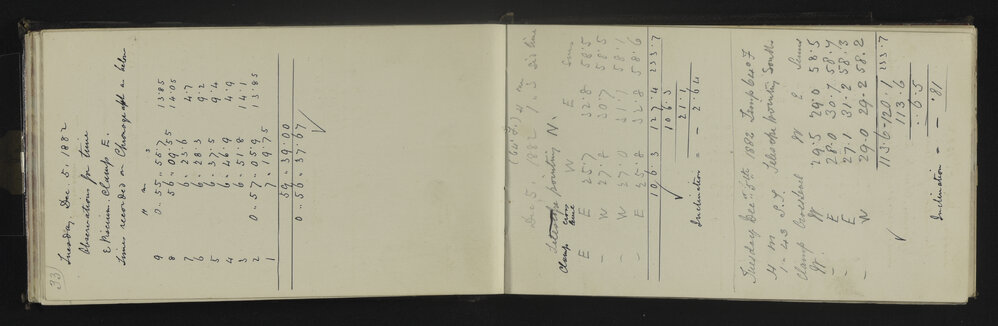 33
Tuesday Dec. 5. 1882
Observations for time
ε Piscium. Clamp E.
Times recorded on Chronograph as below
h m s
9 0.. 55.. 55.7 13.85
8 56.. 09.55 14.05
7 6.. 23.6 4.7
6 6.. 28.3 9.2
5 6.. 37.5 9.4
4 6.. 46.9 4.9
3 6.. 51.8 14.1
2 0.. 57.. 05.9 13.85
1 7.. 19.75
56.. 39.00
0.. 56.. 37.67
(64° F.) h m
Dec 5. 1882 1.. 23 Sid time
Telescope pointing N.
Clamp cross level W E Sums
E E 25.7 32.8 58.5
– W 27.8 30.7 58.5
– W 27.0 31.1 58.1
– E 25.8 32.8 58.6
106.3 127.4 233.7
106.3
21.1
Inclination = – 2.64
Tuesday Dec. 5th 1882 Temp 64° F
H m
1 – 43 S.T. Telescope pointing South
Clamp Cross level W E Sums
W W 29.5 29.0 58.5
– E 28.0 30.7 58.7
– E 27.1 31.2 58.3
– W 29.0 29.2 58.2
113.6 – 120.1 233.7
113.6
6.5
Inclination – .81